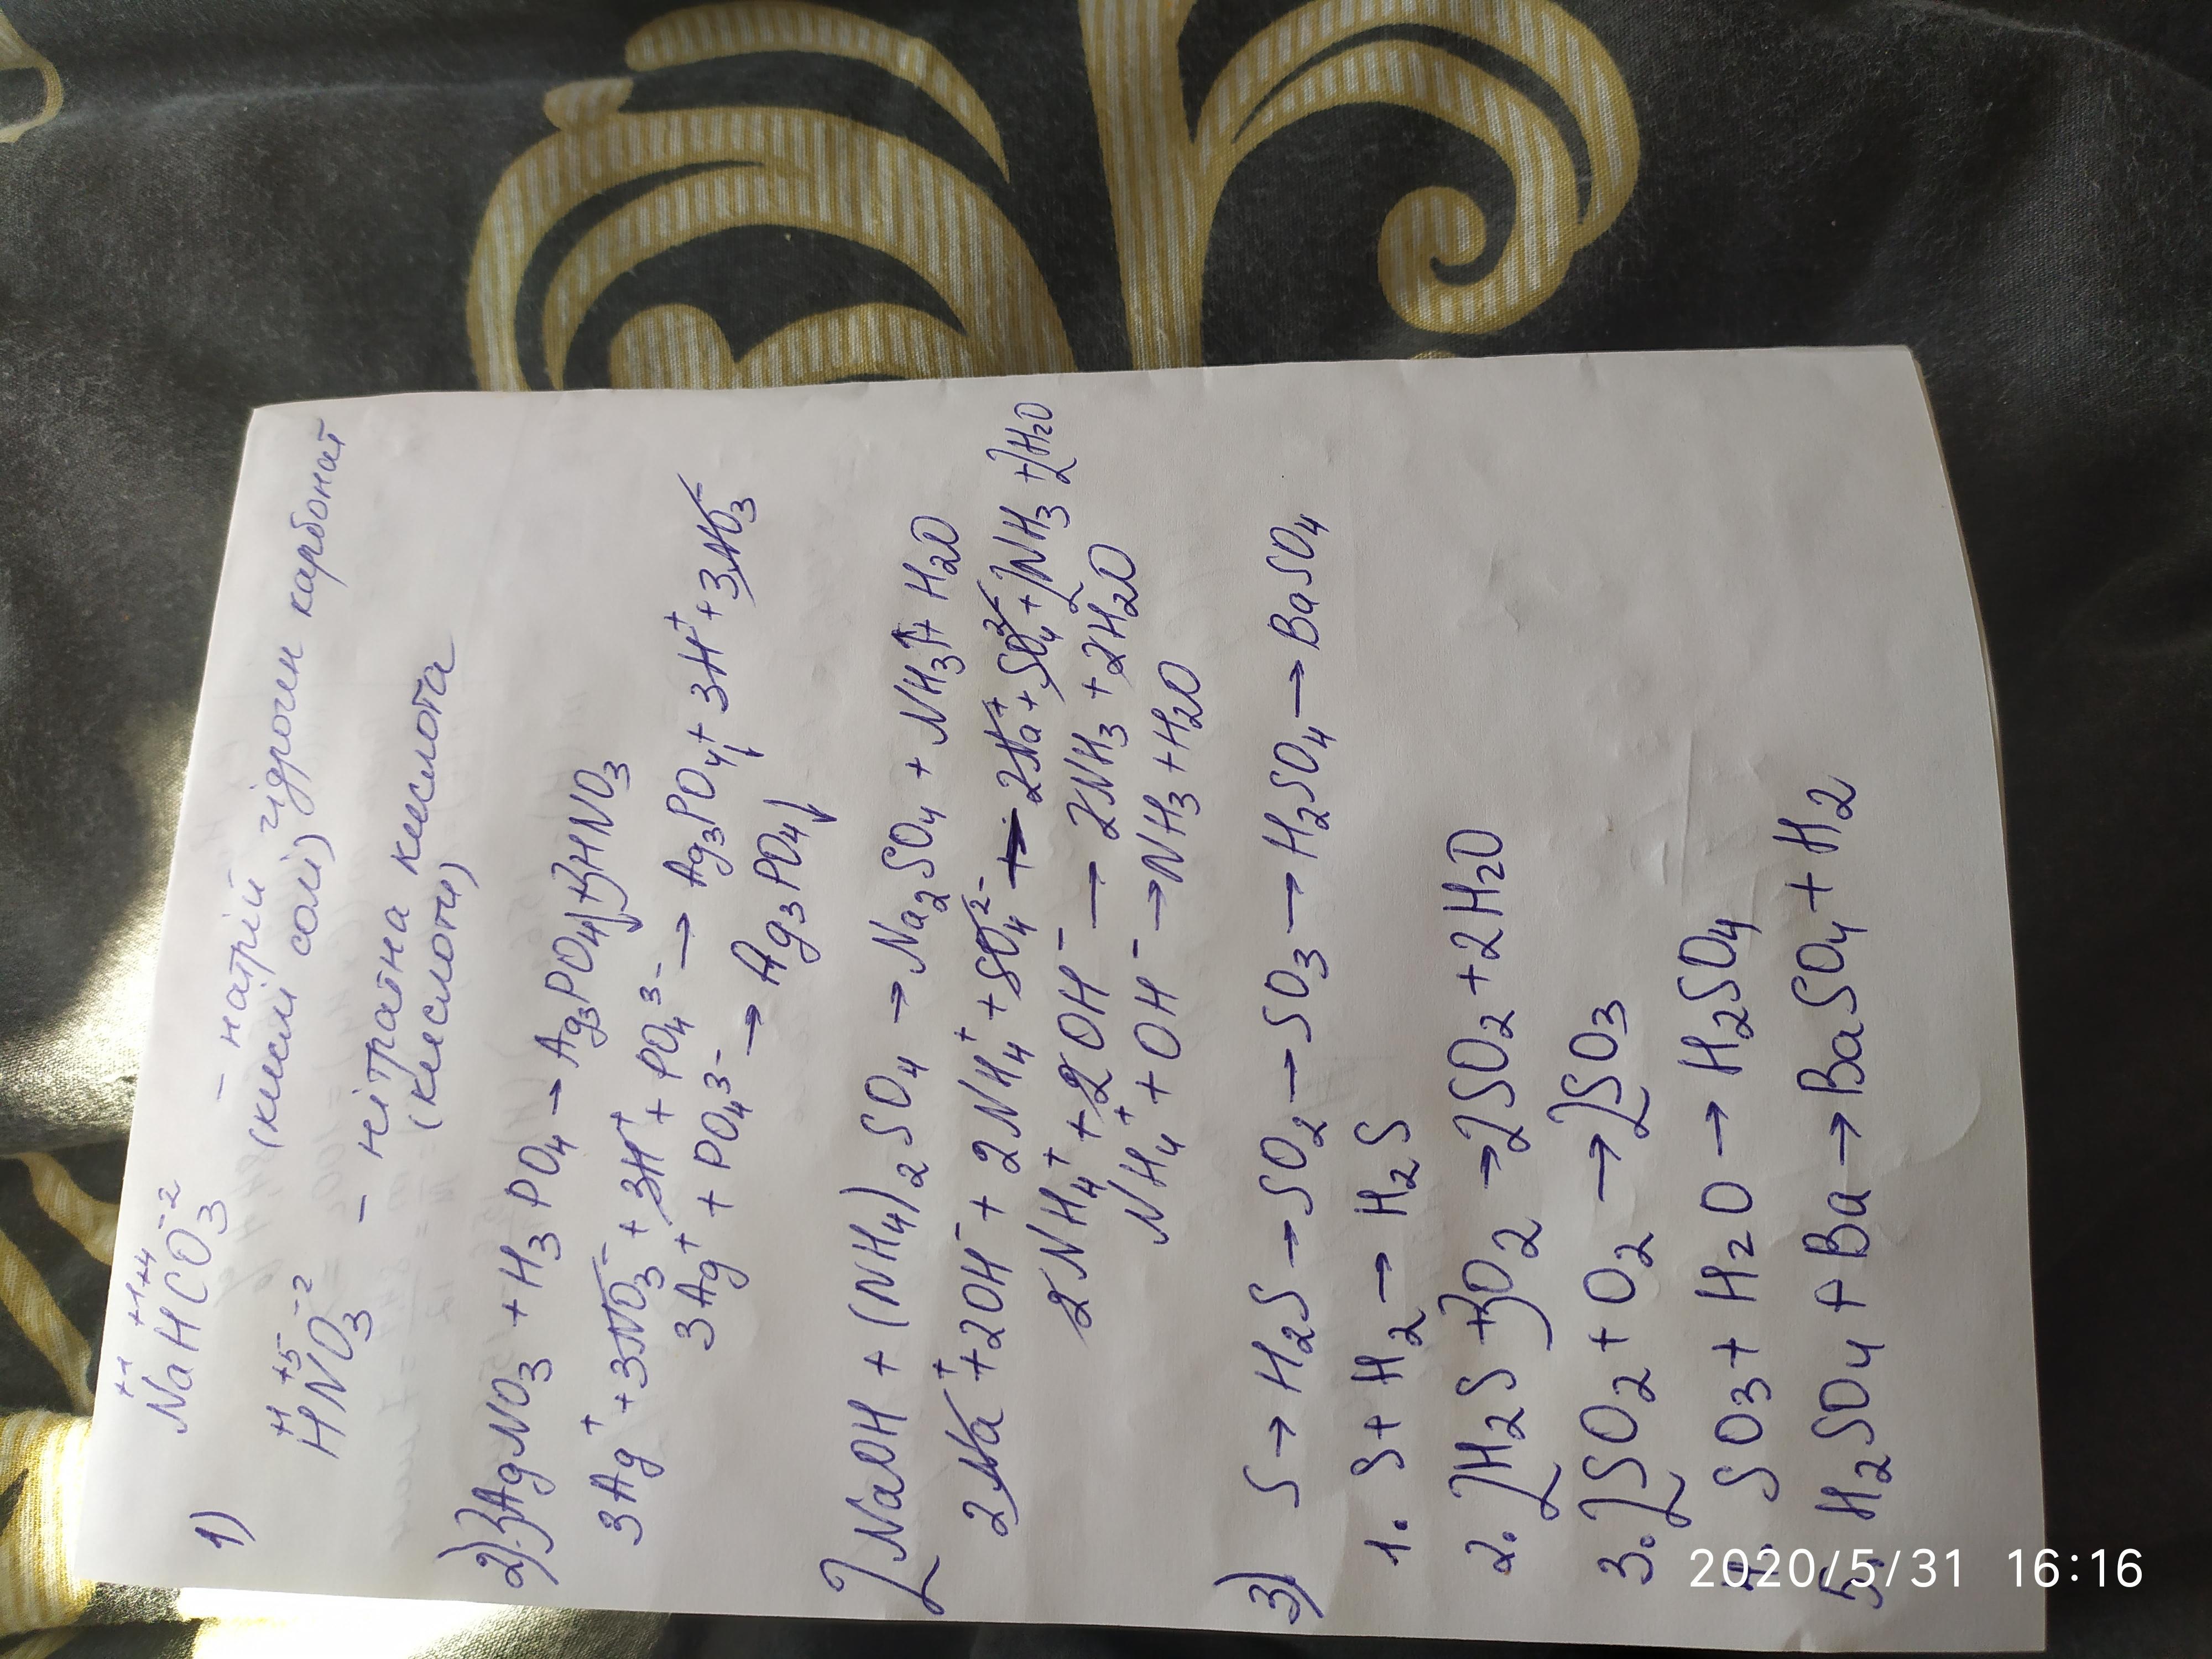 1) Na⁺¹H⁺¹C⁺⁴O₃⁻² – натрій гідроген карбонат
(кислі солі)
H⁺¹N⁺⁵O₃⁻² – нітратна кислота
(кислоти)
2) 3AgNO₃ + H₃PO₄ → Ag₃PO₄↓ + 3HNO₃
3Ag⁺ + 3NO₃⁻ + 3H⁺ + PO₄³⁻ → Ag₃PO₄↓ + 3H⁺ + 3NO₃⁻
3Ag⁺ + PO₄³⁻ → Ag₃PO₄↓
2NaOH + (NH₄)₂SO₄ → Na₂SO₄ + NH₃↑ + H₂O
2Na⁺ + 2OH⁻ + 2NH₄⁺ + SO₄²⁻ → 2Na⁺ + SO₄²⁻ + 2NH₃ + 2H₂O
2NH₄⁺ + 2OH⁻ → 2NH₃ + 2H₂O
NH₄⁺ + OH⁻ → NH₃ + H₂O
3) S → H₂S → SO₂ → SO₃ → H₂SO₄ → BaSO₄
1. S + H₂ → H₂S
2. 2H₂S + 3O₂ → 2SO₂ + 2H₂O
3. 2SO₂ + O₂ → 2SO₃
4. SO₃ + H₂O → H₂SO₄
5. H₂SO₄ + Ba → BaSO₄ + H₂
2020/5/31 16:16